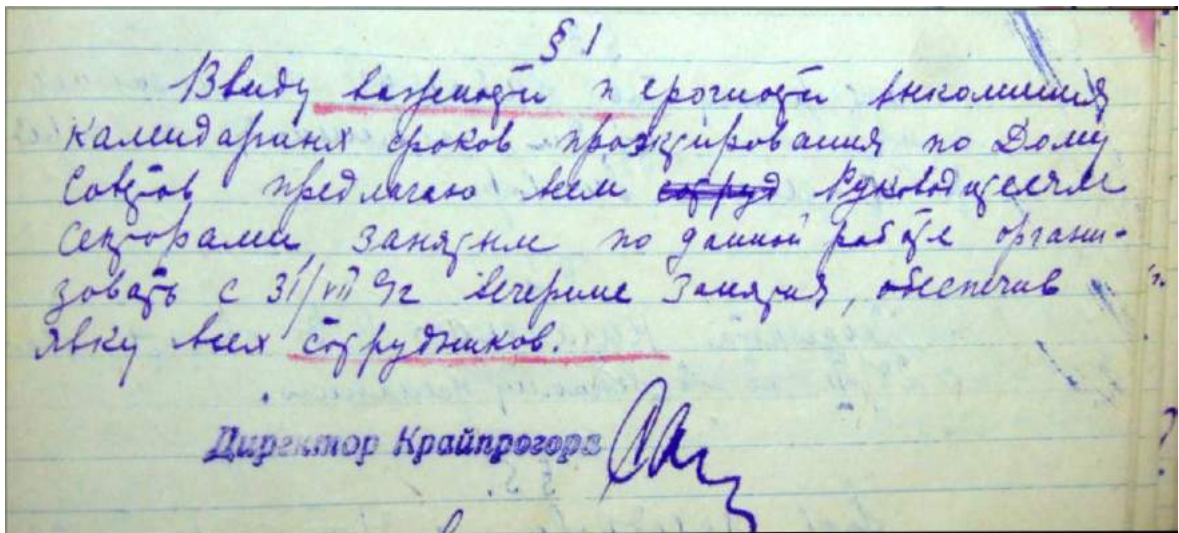 § 1
Ввиду важности и срочности выполнения
календарня сроков проэктирования по Дому
Советов предлагаю всем сотруд Руководителям
Секторами, занятым по данной работе органи-
зовать с 31/VII 9г вечерние занятия, обеспечив
явку всех сотрудников.
Директор Крайпрогора